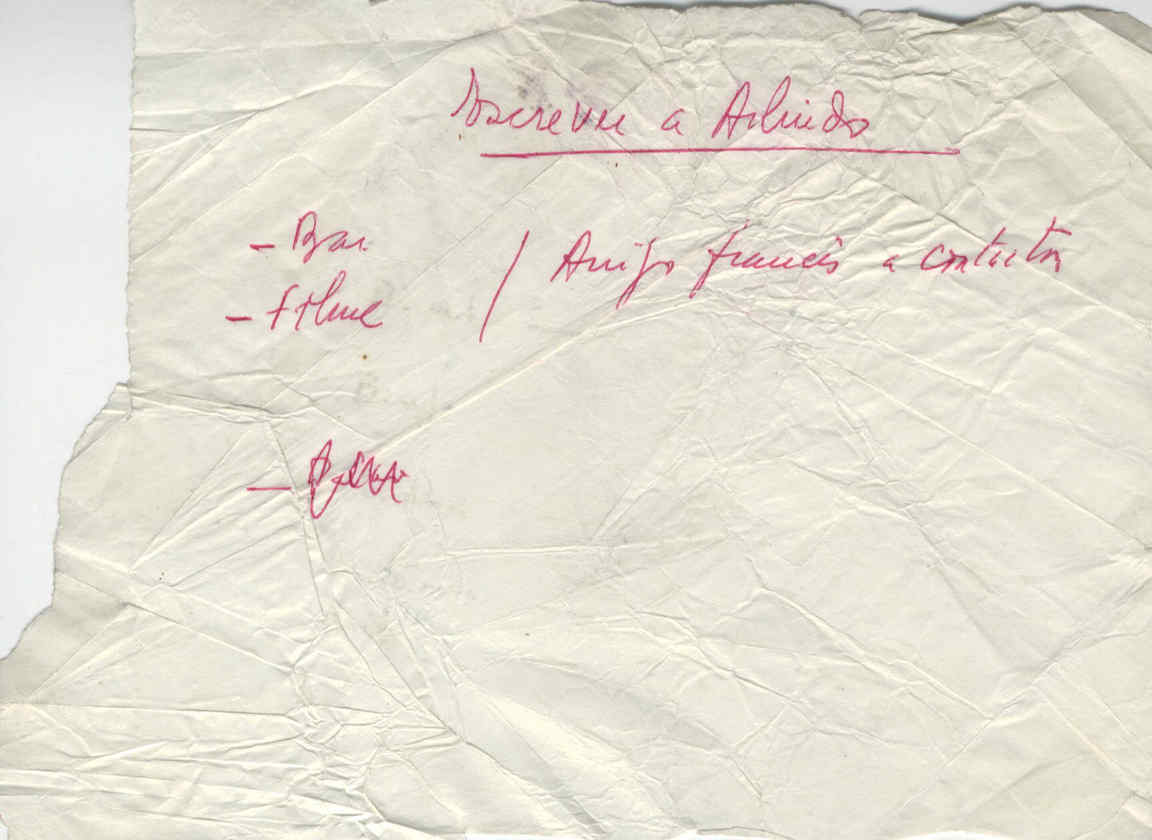 Escrever a Arlindo
- Bar
- Filme / Amigo francês a contactar
-